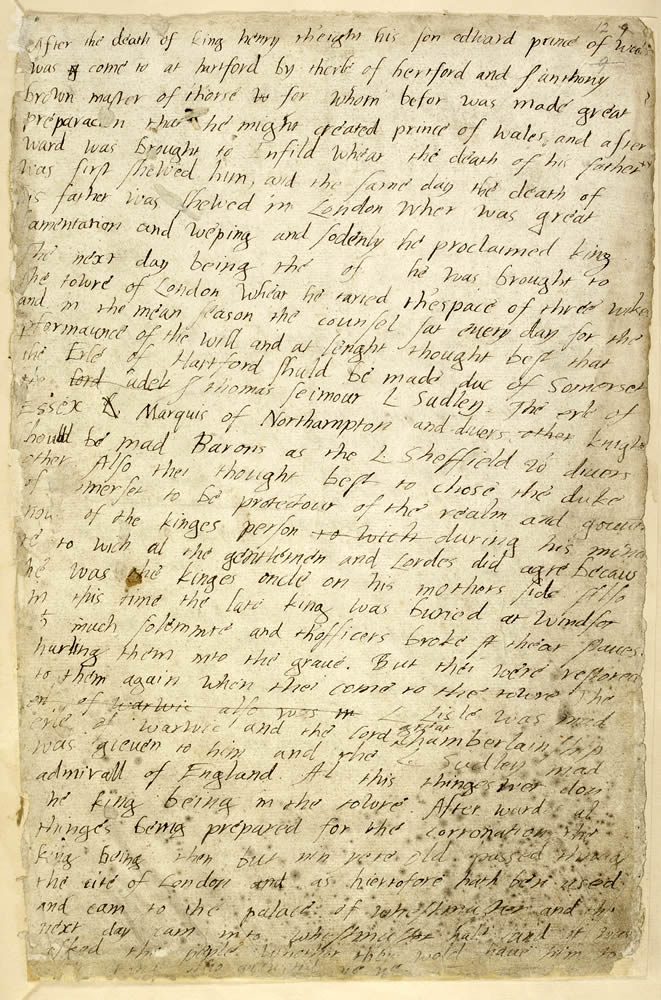 12 9
After the death of King Henry th'eight his son edward prince of wales
was come to at hartford by th'erle of hertford and S anthony
brown master of th'orse for whom befor was made great
preparacion that he might created prince of wales, and after
ward was brought to Enfild whear the death of his father
was first shewed him, and the same day the death of
his father was shewed in London wher was great
lamentation and weping and sodenly he proclaimed king
The next day being the of he was brought to
the towre of London whear he taried th'espace of three wekes
and in the mean season the counsel sat every day for the
performaunce of the will and at lenght thought best that
the Erle of Hartford shuld be made duc of Somerset
the lord S thomas seimour L Sudley. The erle of
Essex Marquis of Northampton and divers other knights
should be mad Barons as the L Sheffield divers
other. Also thei thought best to chose the duke
of somerset to be protectour of the realm and governour
of the kinges person to wich during his
to wich al the gentlemen and Lordes did agre becaus
he was the kinges oncle on his mothers side Also
in this time the late king was buried at Windsor
much solemnite and th'officers broke thear staves
hurling them into the grave. But thei were restored
to them again when thei come to the towre The
of warwic also was L lisle was mad
erle of warwic and the lord great chamberlainship
was gieven to him and the Sudley mad
admirall of England. Al this thinges wer don
the king being in the towre. After ward al
thinges being prepared for the corronation the
king being then but nin yere old passed through
the cite of London and as hiertofore hath ben used
and cam to the palace of whestmister and the
next day cam into whestmister hall and it was
asked the people whether thei wold have him to